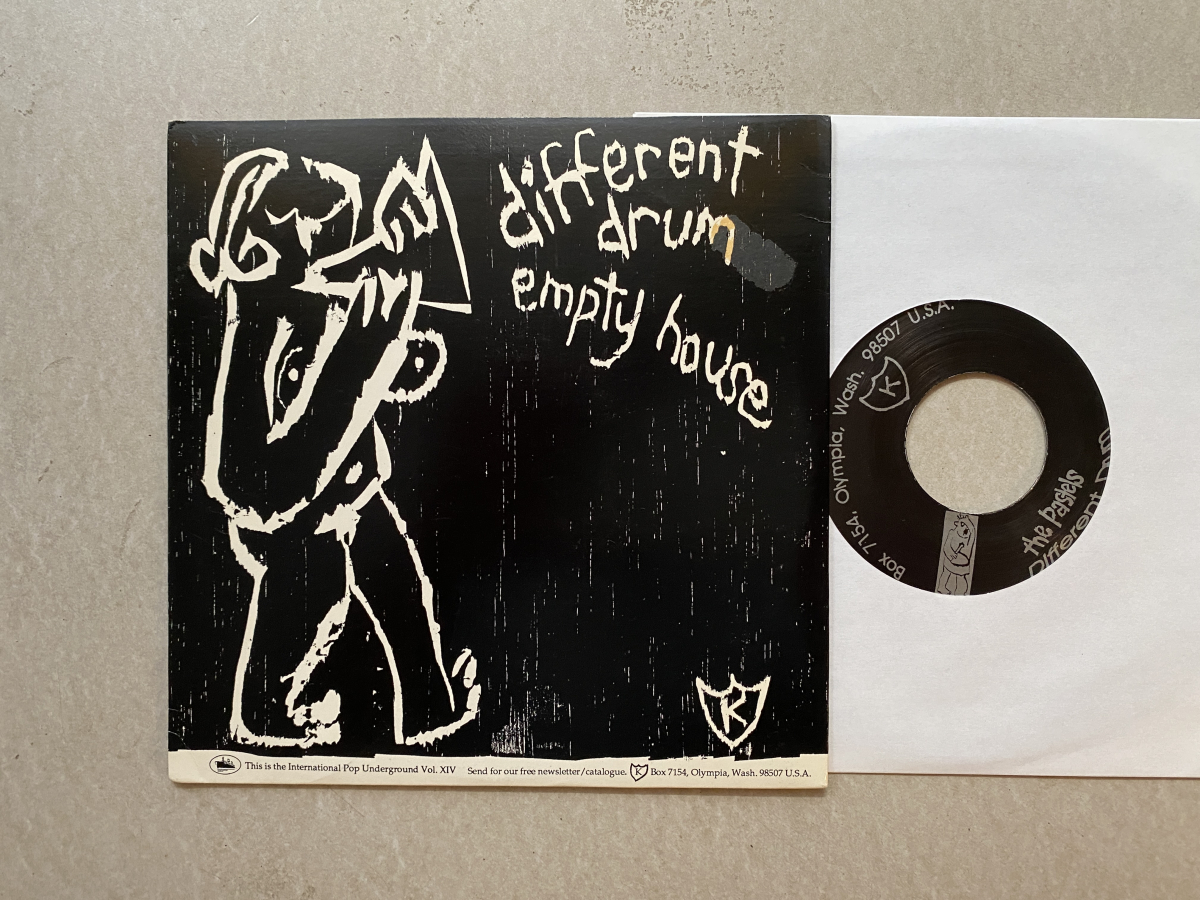 different
drum
empty house
K
This is the International Pop Underground Vol. XIV Send for our free newsletter/catalogue. K Box 7154, Olympia, Wash. 98507 U.S.A.
Box 7154, Olympia, Wash. 98507 U.S.A.
K
the pastels
Different Drum